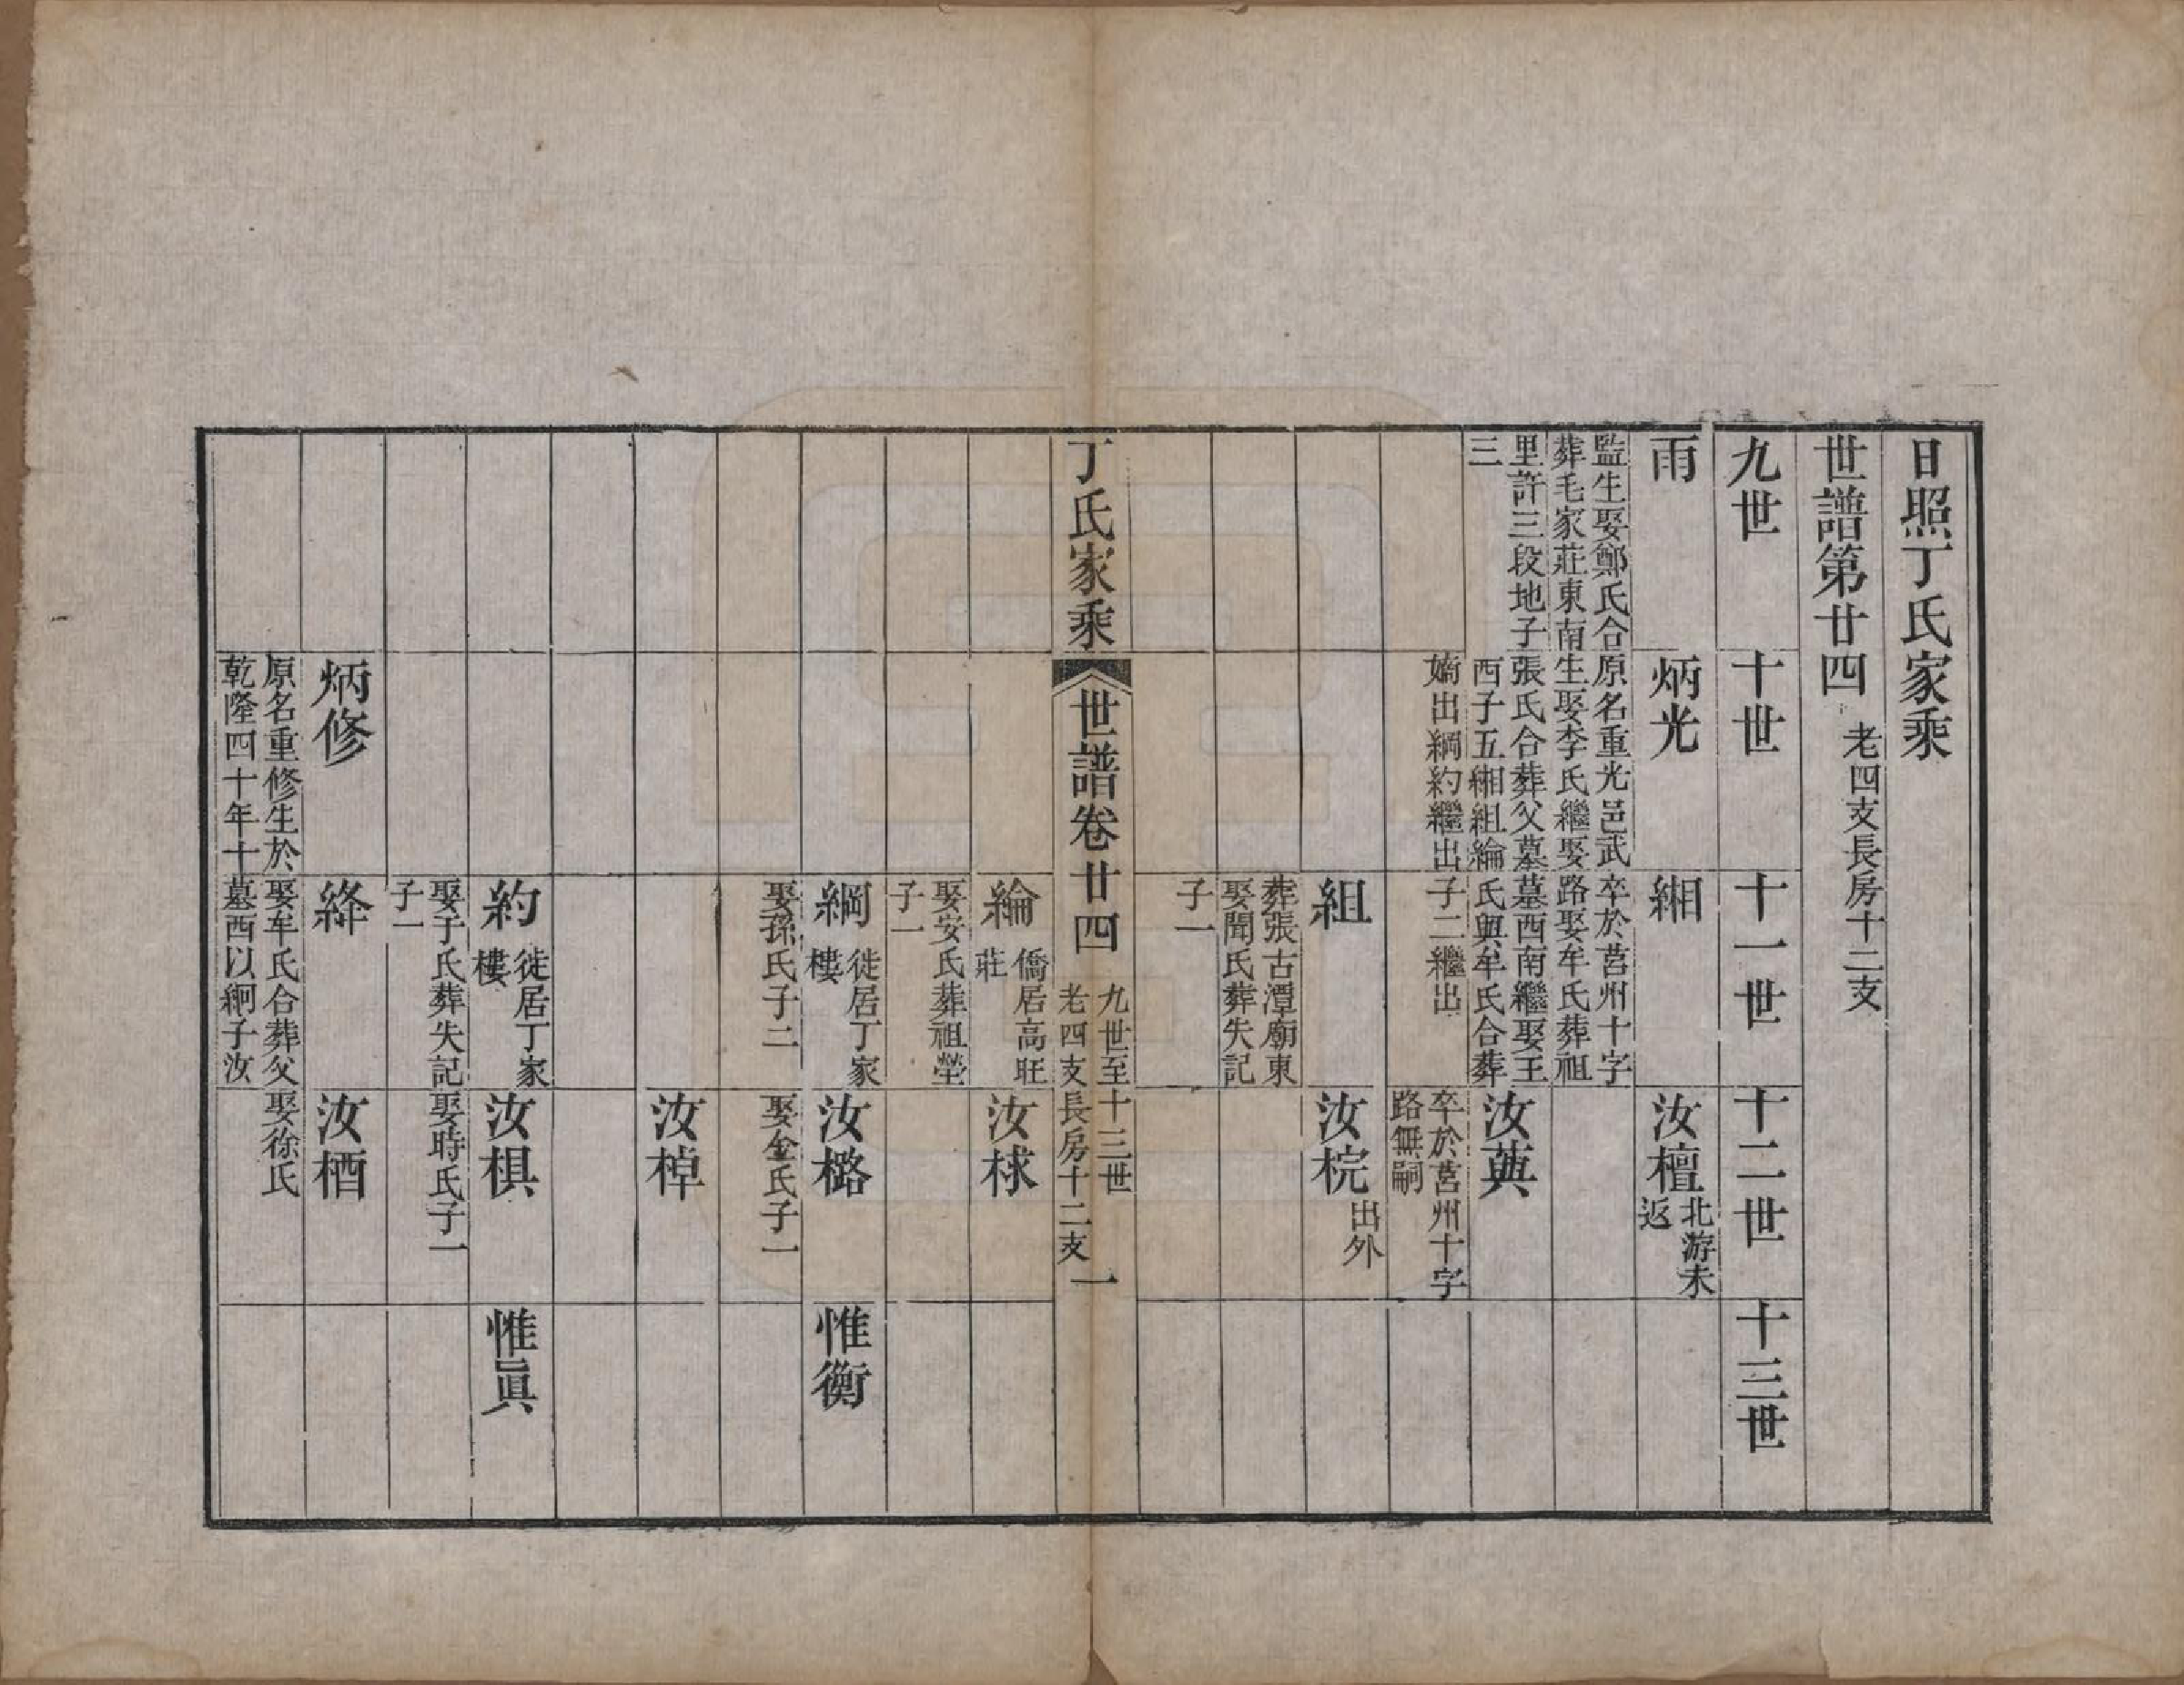 日照丁氏家乘
世譜第廿四
老四支長房十二支
九世
十世
十一世
十二世
十三世
雨
炳光
緗
汝檀
北游未
返
監生娶鄭氏合
葬毛家莊東南
里許三段地子
三
原名重光邑武
生娶李氏繼娶
張氏合葬父墓
西子五緗組綸
嫡出綱約繼出
卒於莒州十字
路娶牟氏葬祖
墓西南繼娶王
氏與牟氏合葬
子二繼出
汝䓟
卒於莒州十字
路無嗣
組
汝梡
出外
葬張古潭廟東
娶聞氏葬失記
子一
丁氏家乘
世譜卷廿四
九世至十三世
老四支長房十二支
一
綸
僑居高旺
莊
汝梂
娶安氏葬祖塋
子一
綱
徙居丁家
樓
汝樚
惟衡
娶孫氏子二
娶金氏子一
汝棹
約
徙居丁家
樓
汝椇
惟眞
娶于氏葬失記
子一
娶時氏子一
炳修
絳
汝梄
原名重修生於
乾隆四十年十
娶牟氏合葬父
墓西以絅子汝
娶徐氏